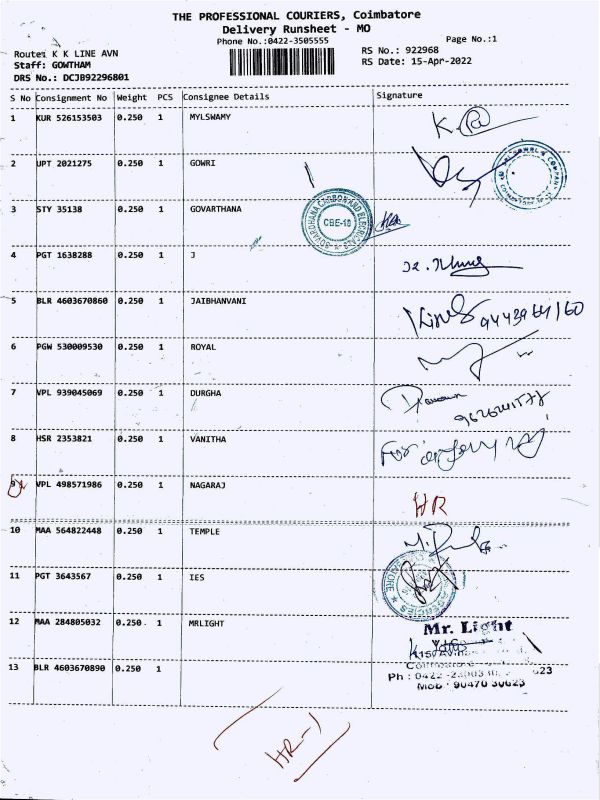 THE PROFESSIONAL COURIERS, Coimbatore
Delivery Runsheet - MO
Phone No.:0422-3505555
Page No.:1
Route: K K LINE AVN
Staff: GOWTHAM
DRS No.: DCJB92296801
RS No.: 922968
RS Date: 15-Apr-2022
S No Consignment No Weight PCS Consignee Details Signature
1 KUR 526153503 0.250 1 MYLSWAMY
2 UPT 2021275 0.250 1 GOWRI
3 STY 35138 0.250 1 GOVARTHANA
GOVARDHANA CBE-18
4 PGT 1638288 0.250 1 J
5 BLR 4603670860 0.250 1 JAIBHANVANI
6 PGW 530009530 0.250 1 ROYAL
7 VPL 939045069 0.250 1 DURGHA
8 HSR 2353821 0.250 1 VANITHA
For
9 VPL 498571986 0.250 1 NAGARAJ
HR
10 MAA 564822448 0.250 1 TEMPLE
11 PGT 3643567 0.250 1 IES
AGENCIES
12 MAA 284805032 0.250 . 1 MRLIGHT
Mr. Light
13 BLR 4603670890 0.250 1
HR-1